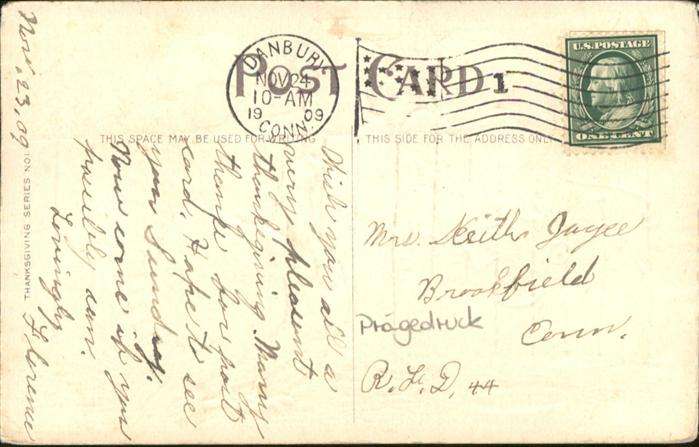 POST CARD
DANBURY,
NOV 24
10-AM
1909
CONN.
1
U.S.POSTAGE
ONE CENT
THIS SPACE MAY BE USED FOR WRITING
THIS SIDE FOR THE ADDRESS ONLY
THANKSGIVING SERIES NO.1
Nov. 23, 09
Wish you all a
very pleasent
thanksgiving. Many
thanks for post
card. Hope to see
you Sunday.
Now come if you
possibly can.
Lovingly
Florence
Mrs. Keith Joyce
Brookfield
Conn.
R.F.D. 44
Prägedruck